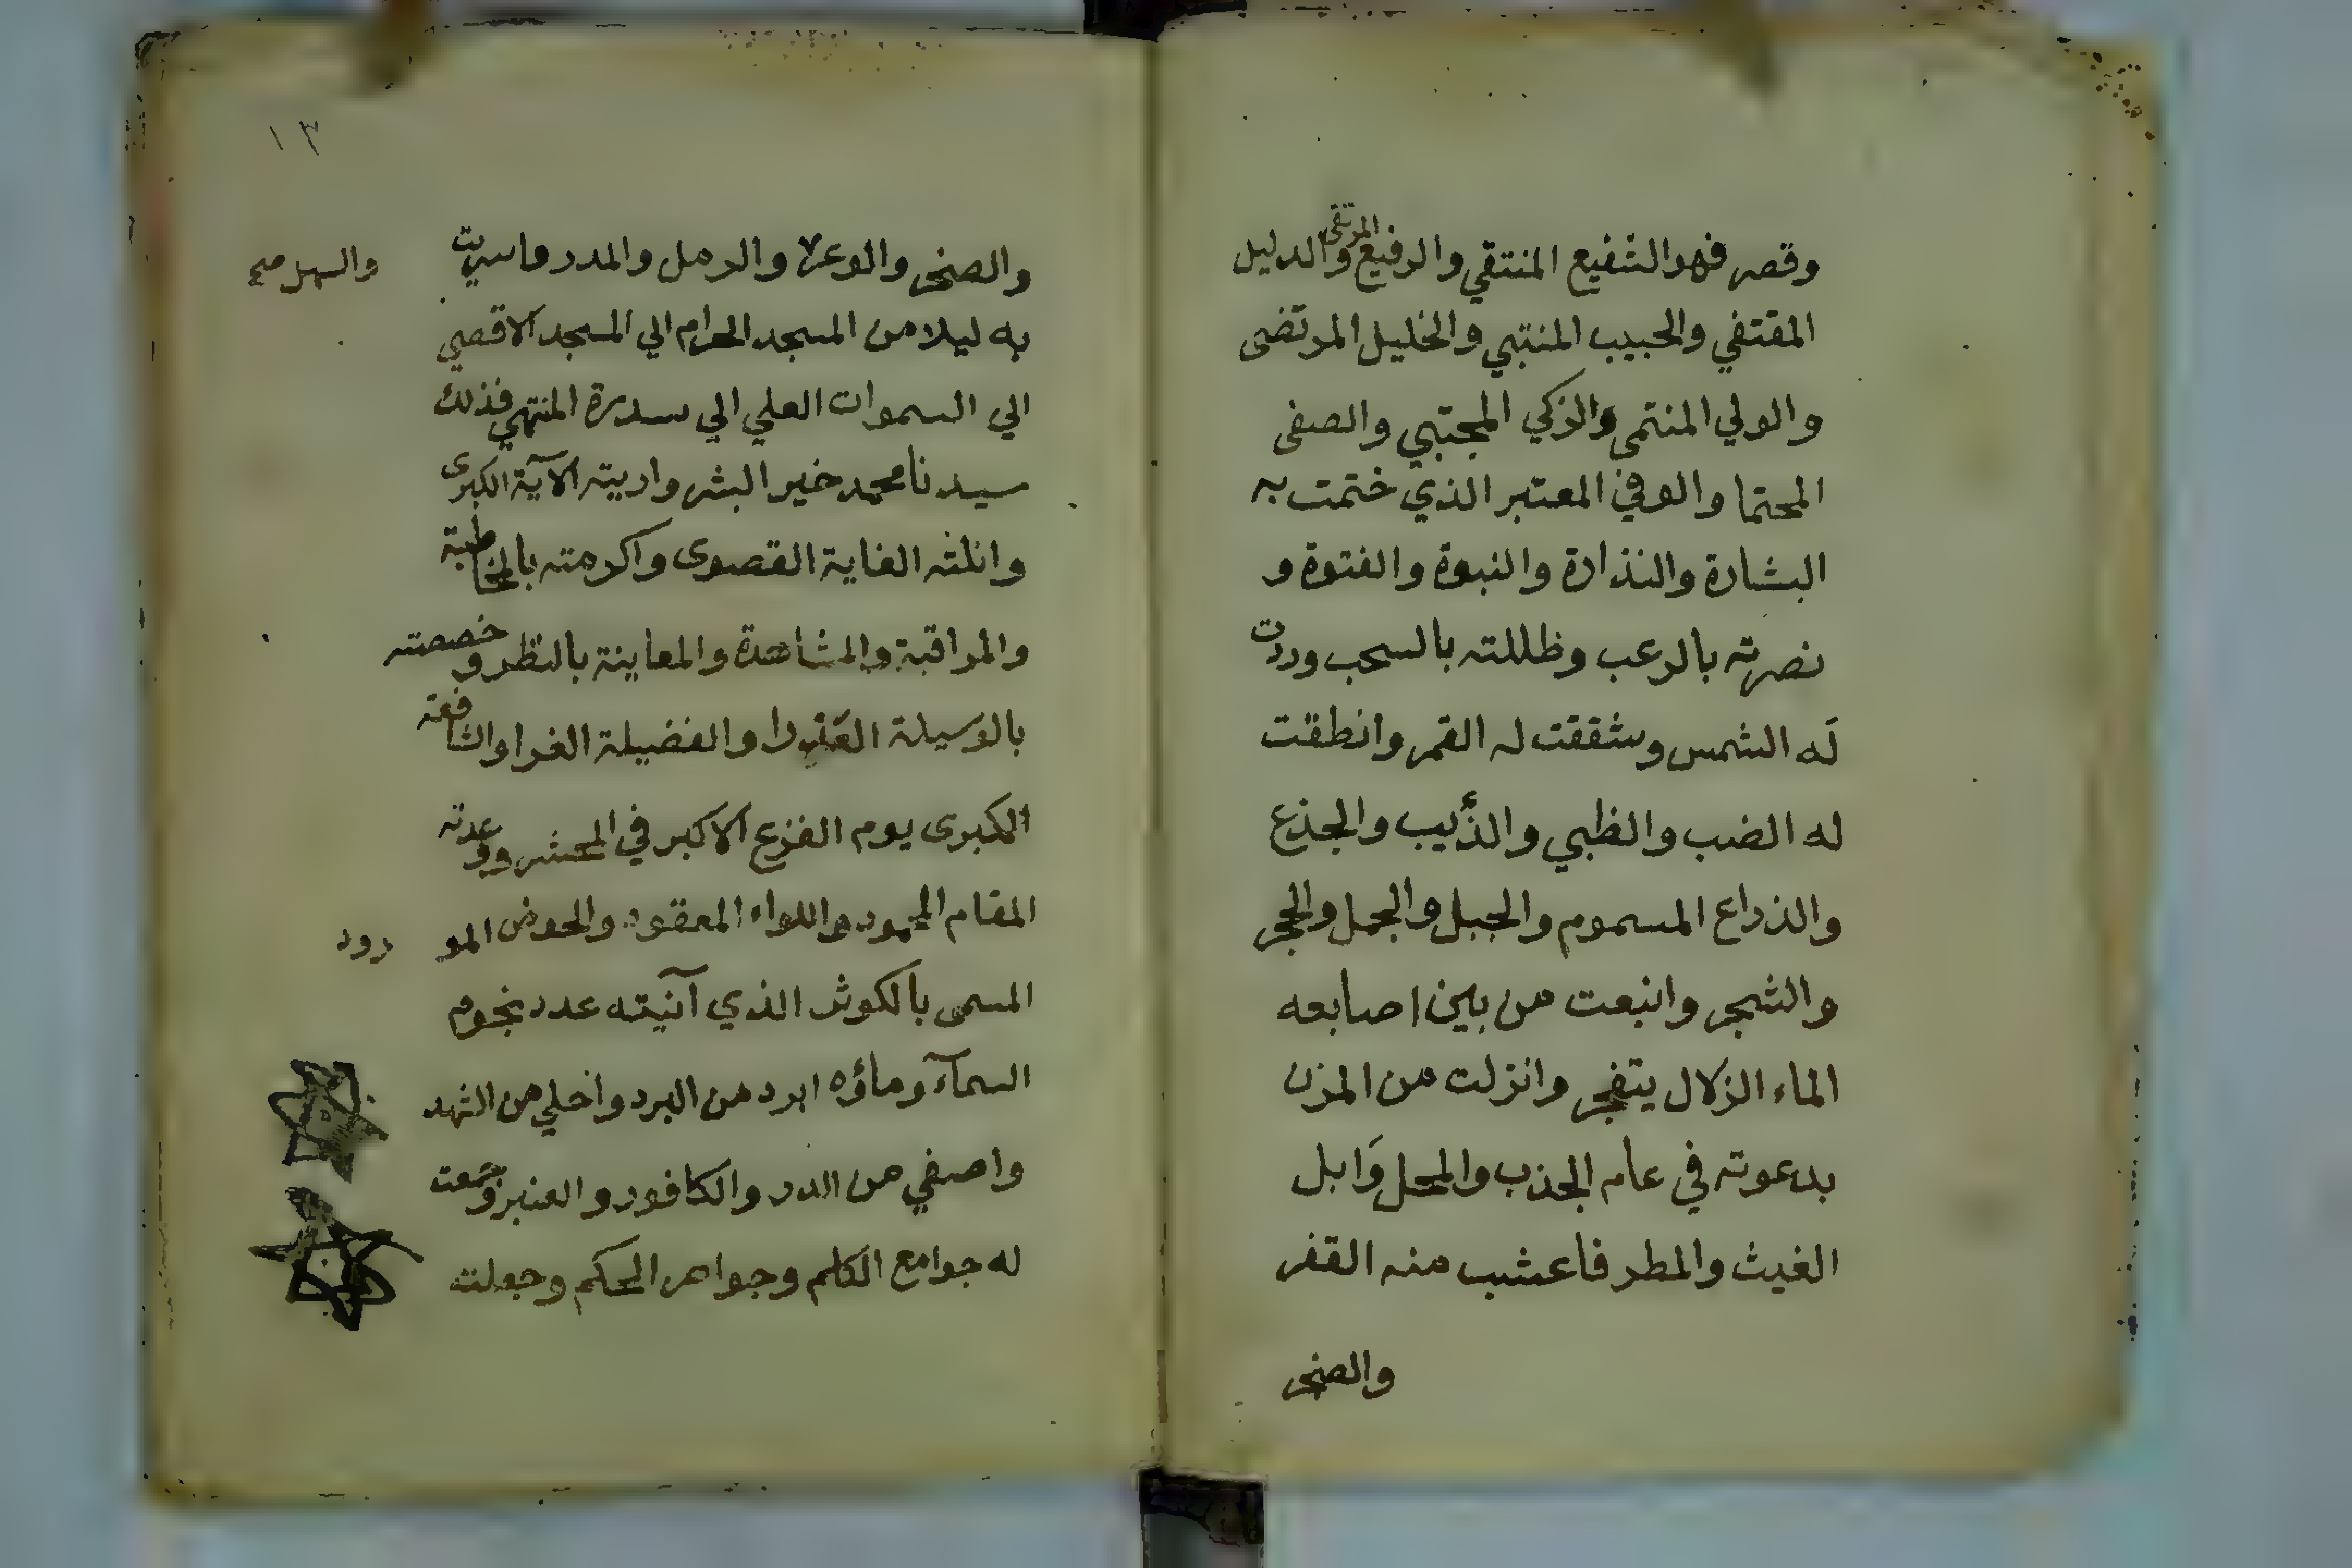 وقصر فهو الشفيع المنتقي والرفيع المرتقى والدليل
المقتفي والحبيب المنتبي والخليل المرتضى
والولي المنتمى والزكي المجتبي والصفى
المحتما والوفي المعتبر الذي ختمت به
البشارة والنذارة والنبوة والفتوة و
نصرته بالرعب وظللته بالسحب ورددت
له الشمس وشققت له القمر وانطقت
له الضب والظبي والذئيب والجذع
والذراع المسموم والجبل والجمل والحجر
والشجر وانبعت من بين اصابعه
الماء الزلال يتفجر وانزلت من المزن
بدعوته في عام الجذب والمحل وَابل
الغيث والمطر فاعشب منه القفر
والصخر
١٣
والصخر والوعر والرمل والمدر واسريت
والسهل صح
به ليلا من المسجد الحرام الي المسجد الاقصي
الي السموات العلي الي سدرة المنتهي فذلك
سيدنا محمد خير البشر واريته الآية الكبرى
وانلته الغاية القصوى واكرمته بالمخاطبة
والمراقبة والمشاهدة والمعاينة بالنظر وخصصته
بالوسيلة العذرا والفضيلة الغرا والشافعة
الكبرى يوم الفزع الاكبر في المحشر ووعدته
المقام المحمود واللواء المعقود والحوض المورود
المسمى بالكوثر الذي آنيته عدد نجوم
السمآء وماؤه ابرد من البرد واحلي من الشهد
واصفي من الدر والكافور والعنبر وجمعت
له جوامع الكلم وجواهر الحكم وجعلت